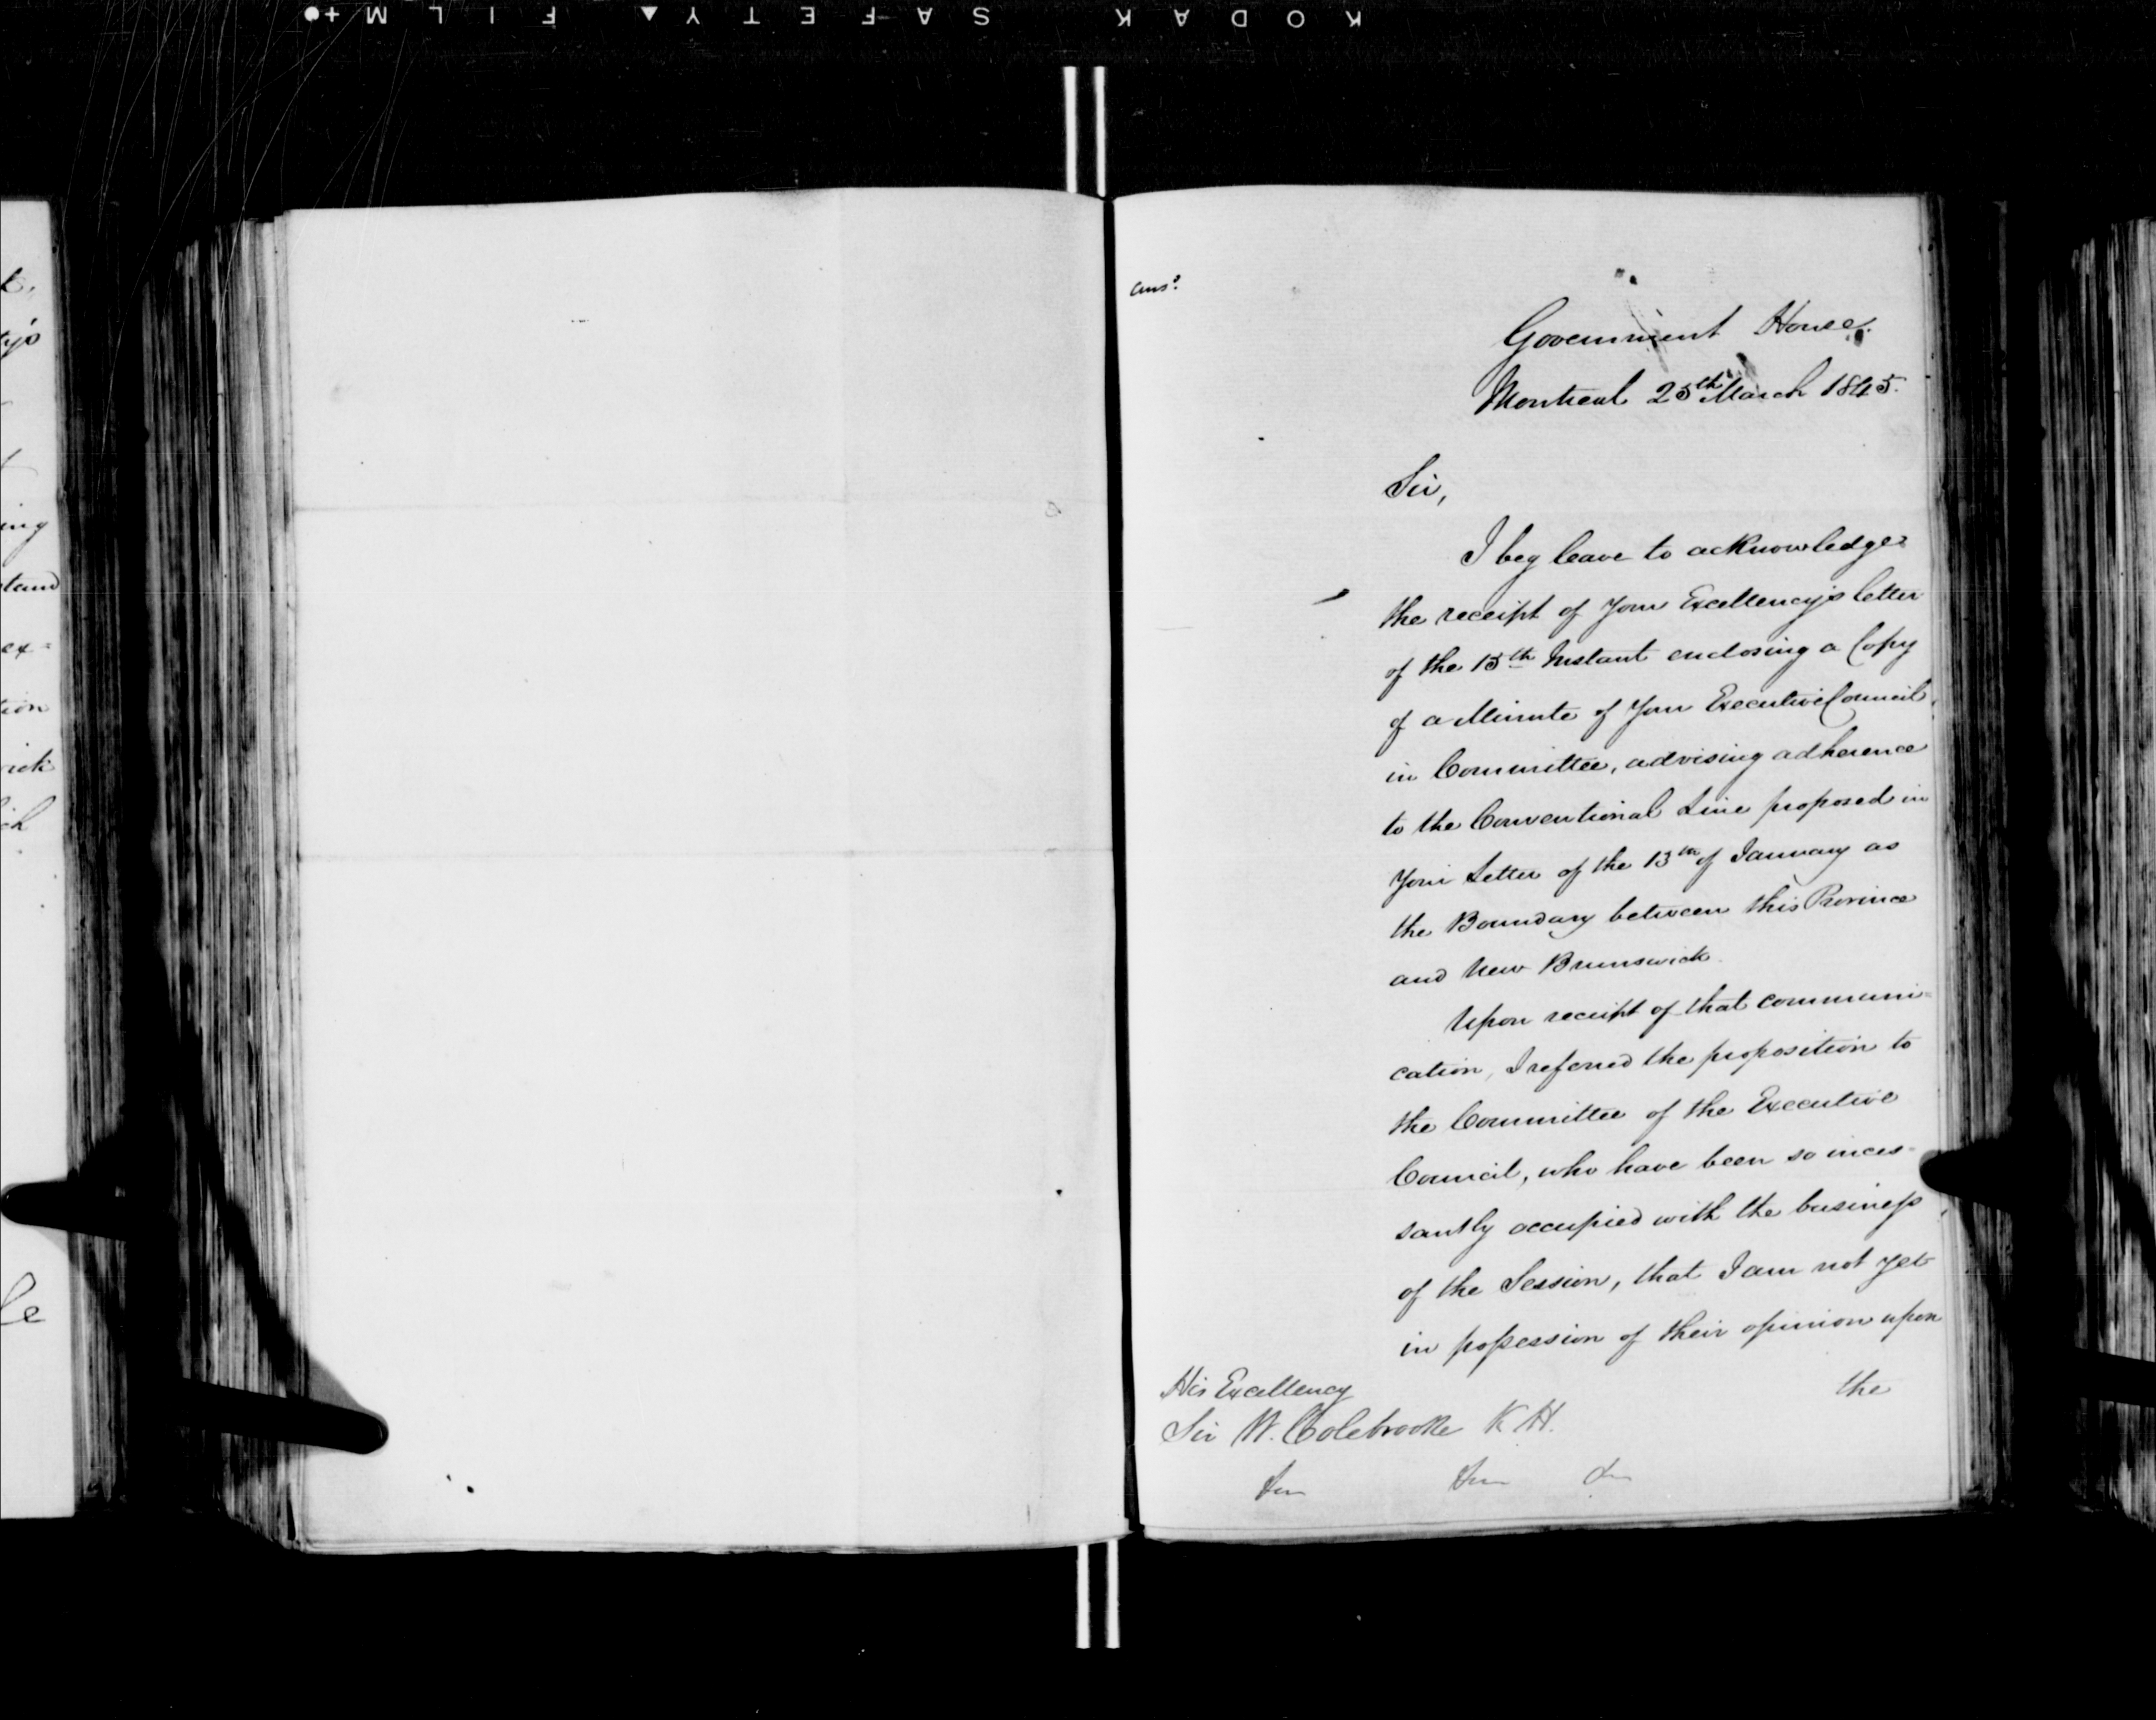 KODAK SAFETY FILM
ansd.
Government House.
Montreal 25th March 1845.
Sir,
I beg leave to acknowledge
the receipt of Your Excellency's letter
of the 15th Instant enclosing a Copy
of a Minute of Your Executive Council,
in Committee, advising adherence
to the Conventional Line proposed in
Your Letter of the 13th of January as
the Boundary between this Province
and New Brunswick.
Upon receipt of that communi=
cation, I referred the proposition to
the Committee of the Executive
Council, who have been so inces-
santly occupied with the business
of the Session, that I am not yet
in possession of their opinion upon
the
His Excellency
Sir W. Colebrooke K.H.
tand
ex=
tion